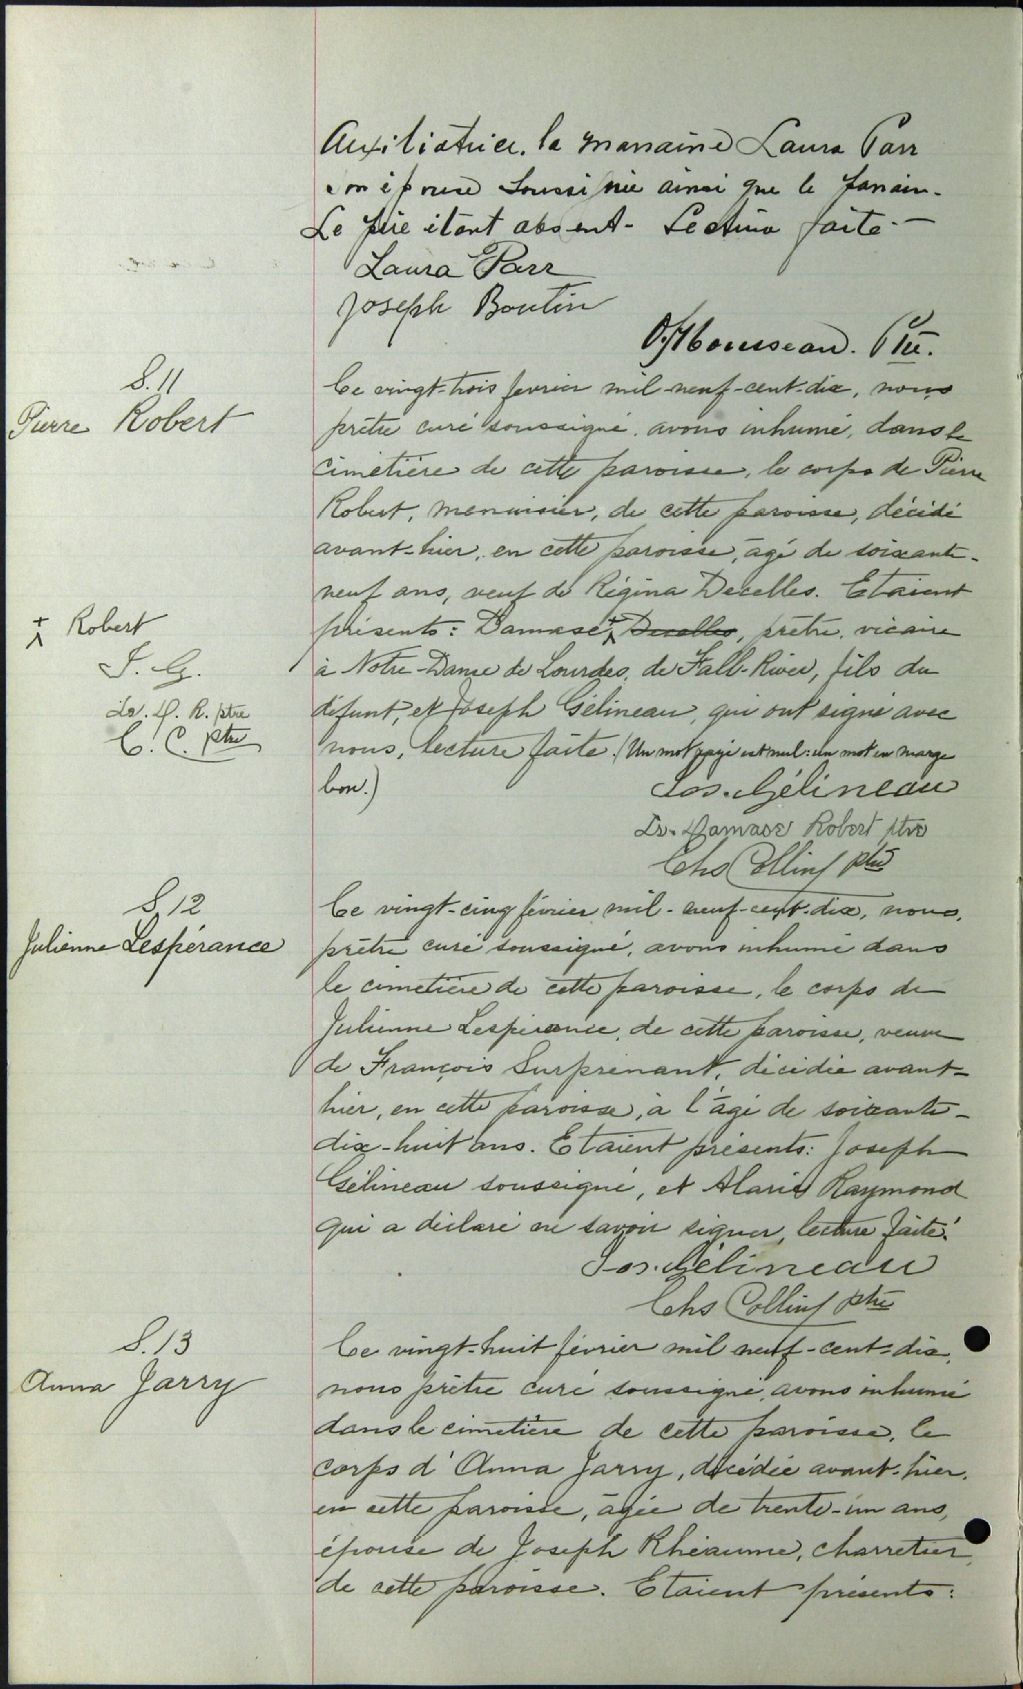 Auxiliatrice. la marraine Laura Parr
son épouse soussignée ainsi que le parrain.
Le père étant absent - Lecture faite -
Laura Parr
Joseph Boutin
Mousseau. Ptre.
S. 11
Pierre Robert
Ce vingt-trois fevrier mil-neuf-cent-dix, nous
prêtre curé soussigné, avons inhumé, dans le
cimetière de cette paroisse, le corps de Pierre
Robert, menuisier, de cette paroisse, décédé
avant-hier, en cette paroisse, âgé de soixante-
neuf ans, veuf de Régina Decelles. Etaient
présents: Damase, Decelles, prêtre, vicaire
à Notre-Dame de Lourdes, de Fall-River, fils du
défunt, et Joseph Gélineau, qui ont signé avec
nous, lecture faite. (Un mot rayé est nul: un mot en marge
bon.)
+ Robert
J. G.
Ls. D. R. ptre
C. C. ptre
Jos. Gélineau
Ls. Damase Robert ptre
Chs Collin ptre
S 12
Julienne Lespérance
Ce vingt-cinq février mil-neuf-cent-dix, nous,
prêtre curé soussigné, avons inhumé dans
le cimetière de cette paroisse, le corps de
Julienne Lespérance, de cette paroisse, veuve
de François Surprenant, décédée avant-
hier, en cette paroisse, à l'âge de soixante-
dix-huit ans. Etaient présents: Joseph
Gélineau soussigné, et Alarie Raymond
qui a déclaré ne savoir signer, lecture faite.
Jos. Gélineau
Chs Collin ptre
S. 13
Anna Jarry
Ce vingt-huit février mil neuf-cent-dix,
nous prêtre curé soussigné, avons inhumé
dans le cimetière de cette paroisse, le
corps d'Anna Jarry, décédée avant-hier,
en cette paroisse, âgée de trente-un ans,
épouse de Joseph Rhéaume, charretier,
de cette paroisse. Etaient présents: